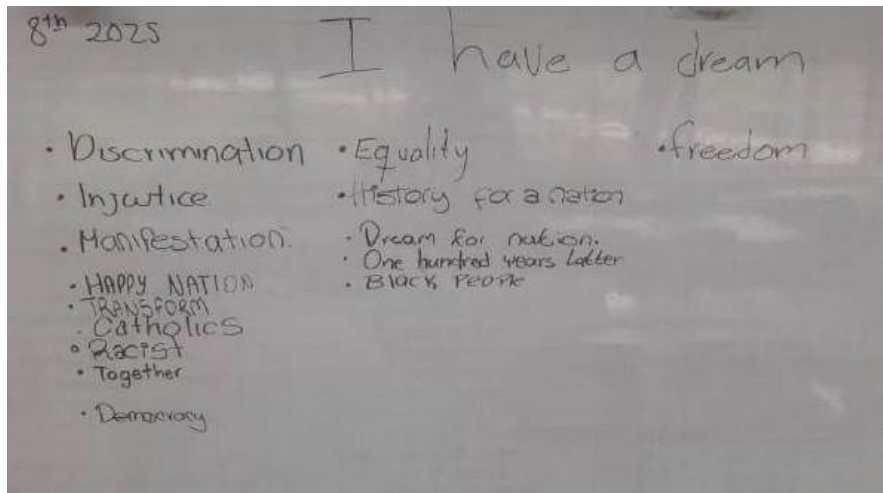 8th 2025
I have a dream
• Discrimination
• Injustice
• Manifestation.
• HAPPY NATION
• TRANSFORM
• Catholics
• Racist
• Together
• Democracy
• Equality
• History for a nation
• Dream for nation.
• One hundred years Latter
• Black People
• freedom